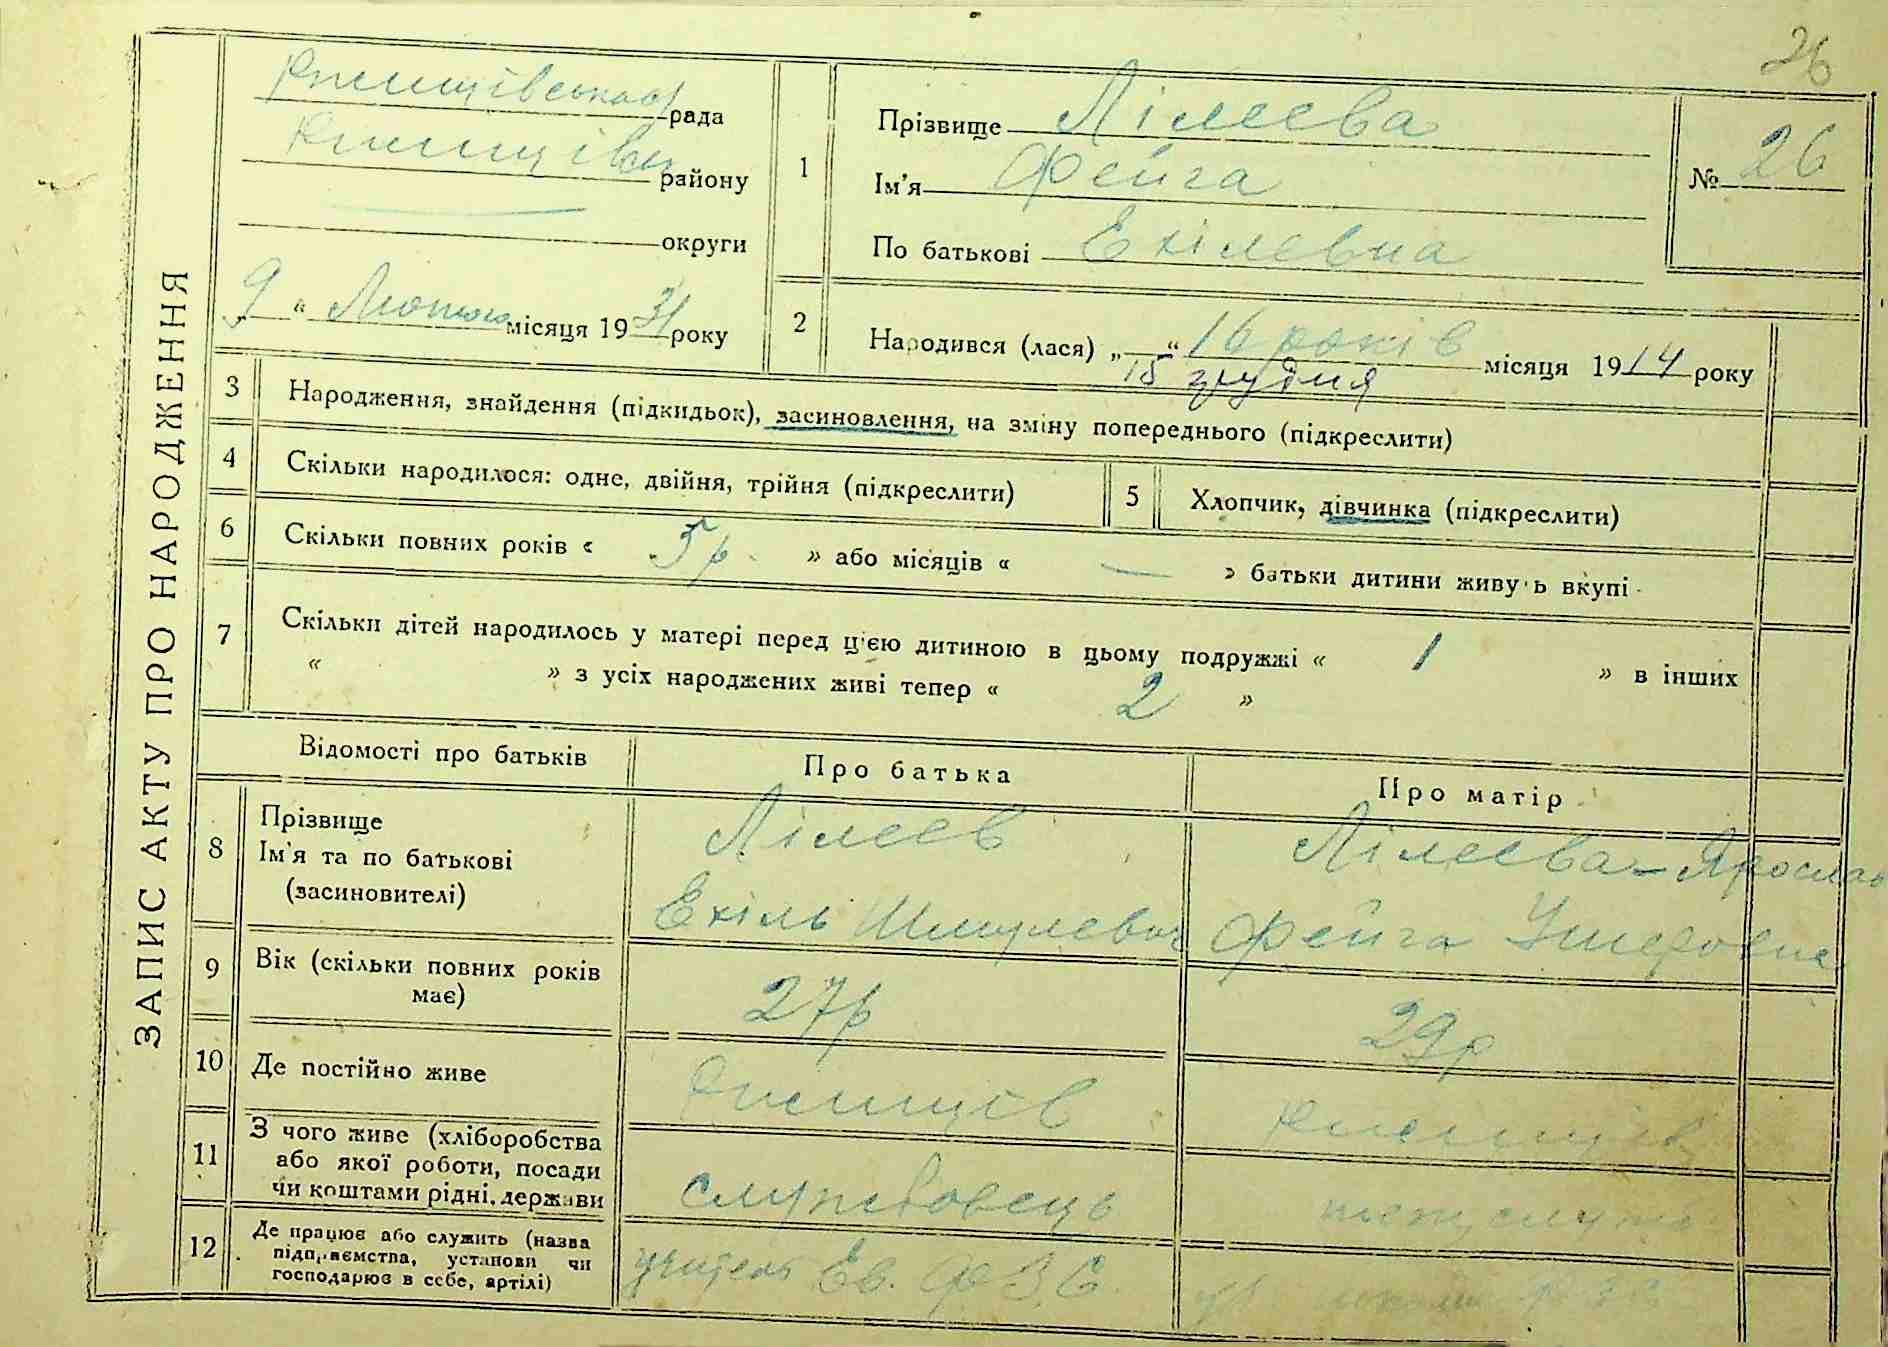 26
ЗАПИС АКТУ ПРО НАРОДЖЕННЯ
Ржищівська рада
Ржищівськ району
округи
„9“ Лютого місяця 1931 року
1
Прізвище Лілеєва
Ім'я Фейга
По батькові Ехілевна
№ 26
2
Народився (лася) „ “ 16 років місяця 1914 року
15 грудня
3 Народження, знайдення (підкидьок), засиновлення, на зміну попереднього (підкреслити)
4 Скільки народилося: одне, двійня, трійня (підкреслити)
5 Хлопчик, дівчинка (підкреслити)
6 Скільки повних років « 5 р. » або місяців « — » батьки дитини живуть вкупі
7 Скільки дітей народилось у матері перед цією дитиною в цьому подружжі « 1 » в інших
« » з усіх народжених живі тепер « 2 »
Відомості про батьків
Про батька
Про матір
8
Прізвище
Ім'я та по батькові
(засиновителі)
Лілеєв
Ехіль Шмулевич
Лілеєва-Ярослав
Фейга Ушеровна
9 Вік (скільки повних років
має)
27р
29р
10 Де постійно живе
Ржищів
Ржищів
11
З чого живе (хліборобства
або якої роботи, посади
чи коштами рідні, держави
службовець
12
Де працює або служить (назва
підприємства, установи чи
господарює в себе, артілі)
учитель Єв. ФЗС
ФЗС